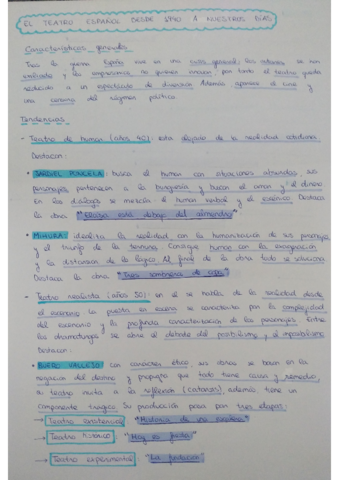 EL TEATRO ESPAÑOL DESDE 1940 A NUESTROS DÍAS
Características generales
Tras la guerra España vive en una crisis general; los autores se van
exiliados y los empresarios no quieren innovar, por tanto el teatro queda
reducido a un espectáculo de diversión. Además aparece el cine y
una censura del régimen político.
Tendencias
- Teatro de humor (años 40): está alejado de la realidad
Destacan:
• JARDIEL PONCELA: busca el humor con situaciones absurdas, sus
personajes pertenecen a la burguesía y buscan el amor y el dinero
en los diálogos se mezcla el humor verbal y el escénico. Destaca
la obra "Eloísa está debajo del almendro"
• MIHURA: idealiza la realidad con la humanización de sus personajes
y el triunfo de la ternura. Consigue humor con la exageración
y la distorsión de la lógica. Al final de la obra todo se soluciona
Destaca la obra "Tres sombreros de copa"
- Teatro realista (años 50): en él se habla de la sociedad desde
el escenario. La puesta en escena se caracteriza por la complejidad
del escenario y la profunda caracterización de los personajes. Entre
los dramaturgos se abre el debate del posibilismo y el imposibilismo
Destacan:
• BUERO VALLEJO: con carácter ético sus obras se basan en la
negación del destino y propugna que todo tiene causa y remedio,
su teatro invita a la reflexión (catarsis), además tiene un
componente trágico. Su producción pasa por tres etapas:
→ Teatro existencial "Historia de una escalera"
→ Teatro histórico "Hoy es fiesta"
→ Teatro experimental "La fundación"